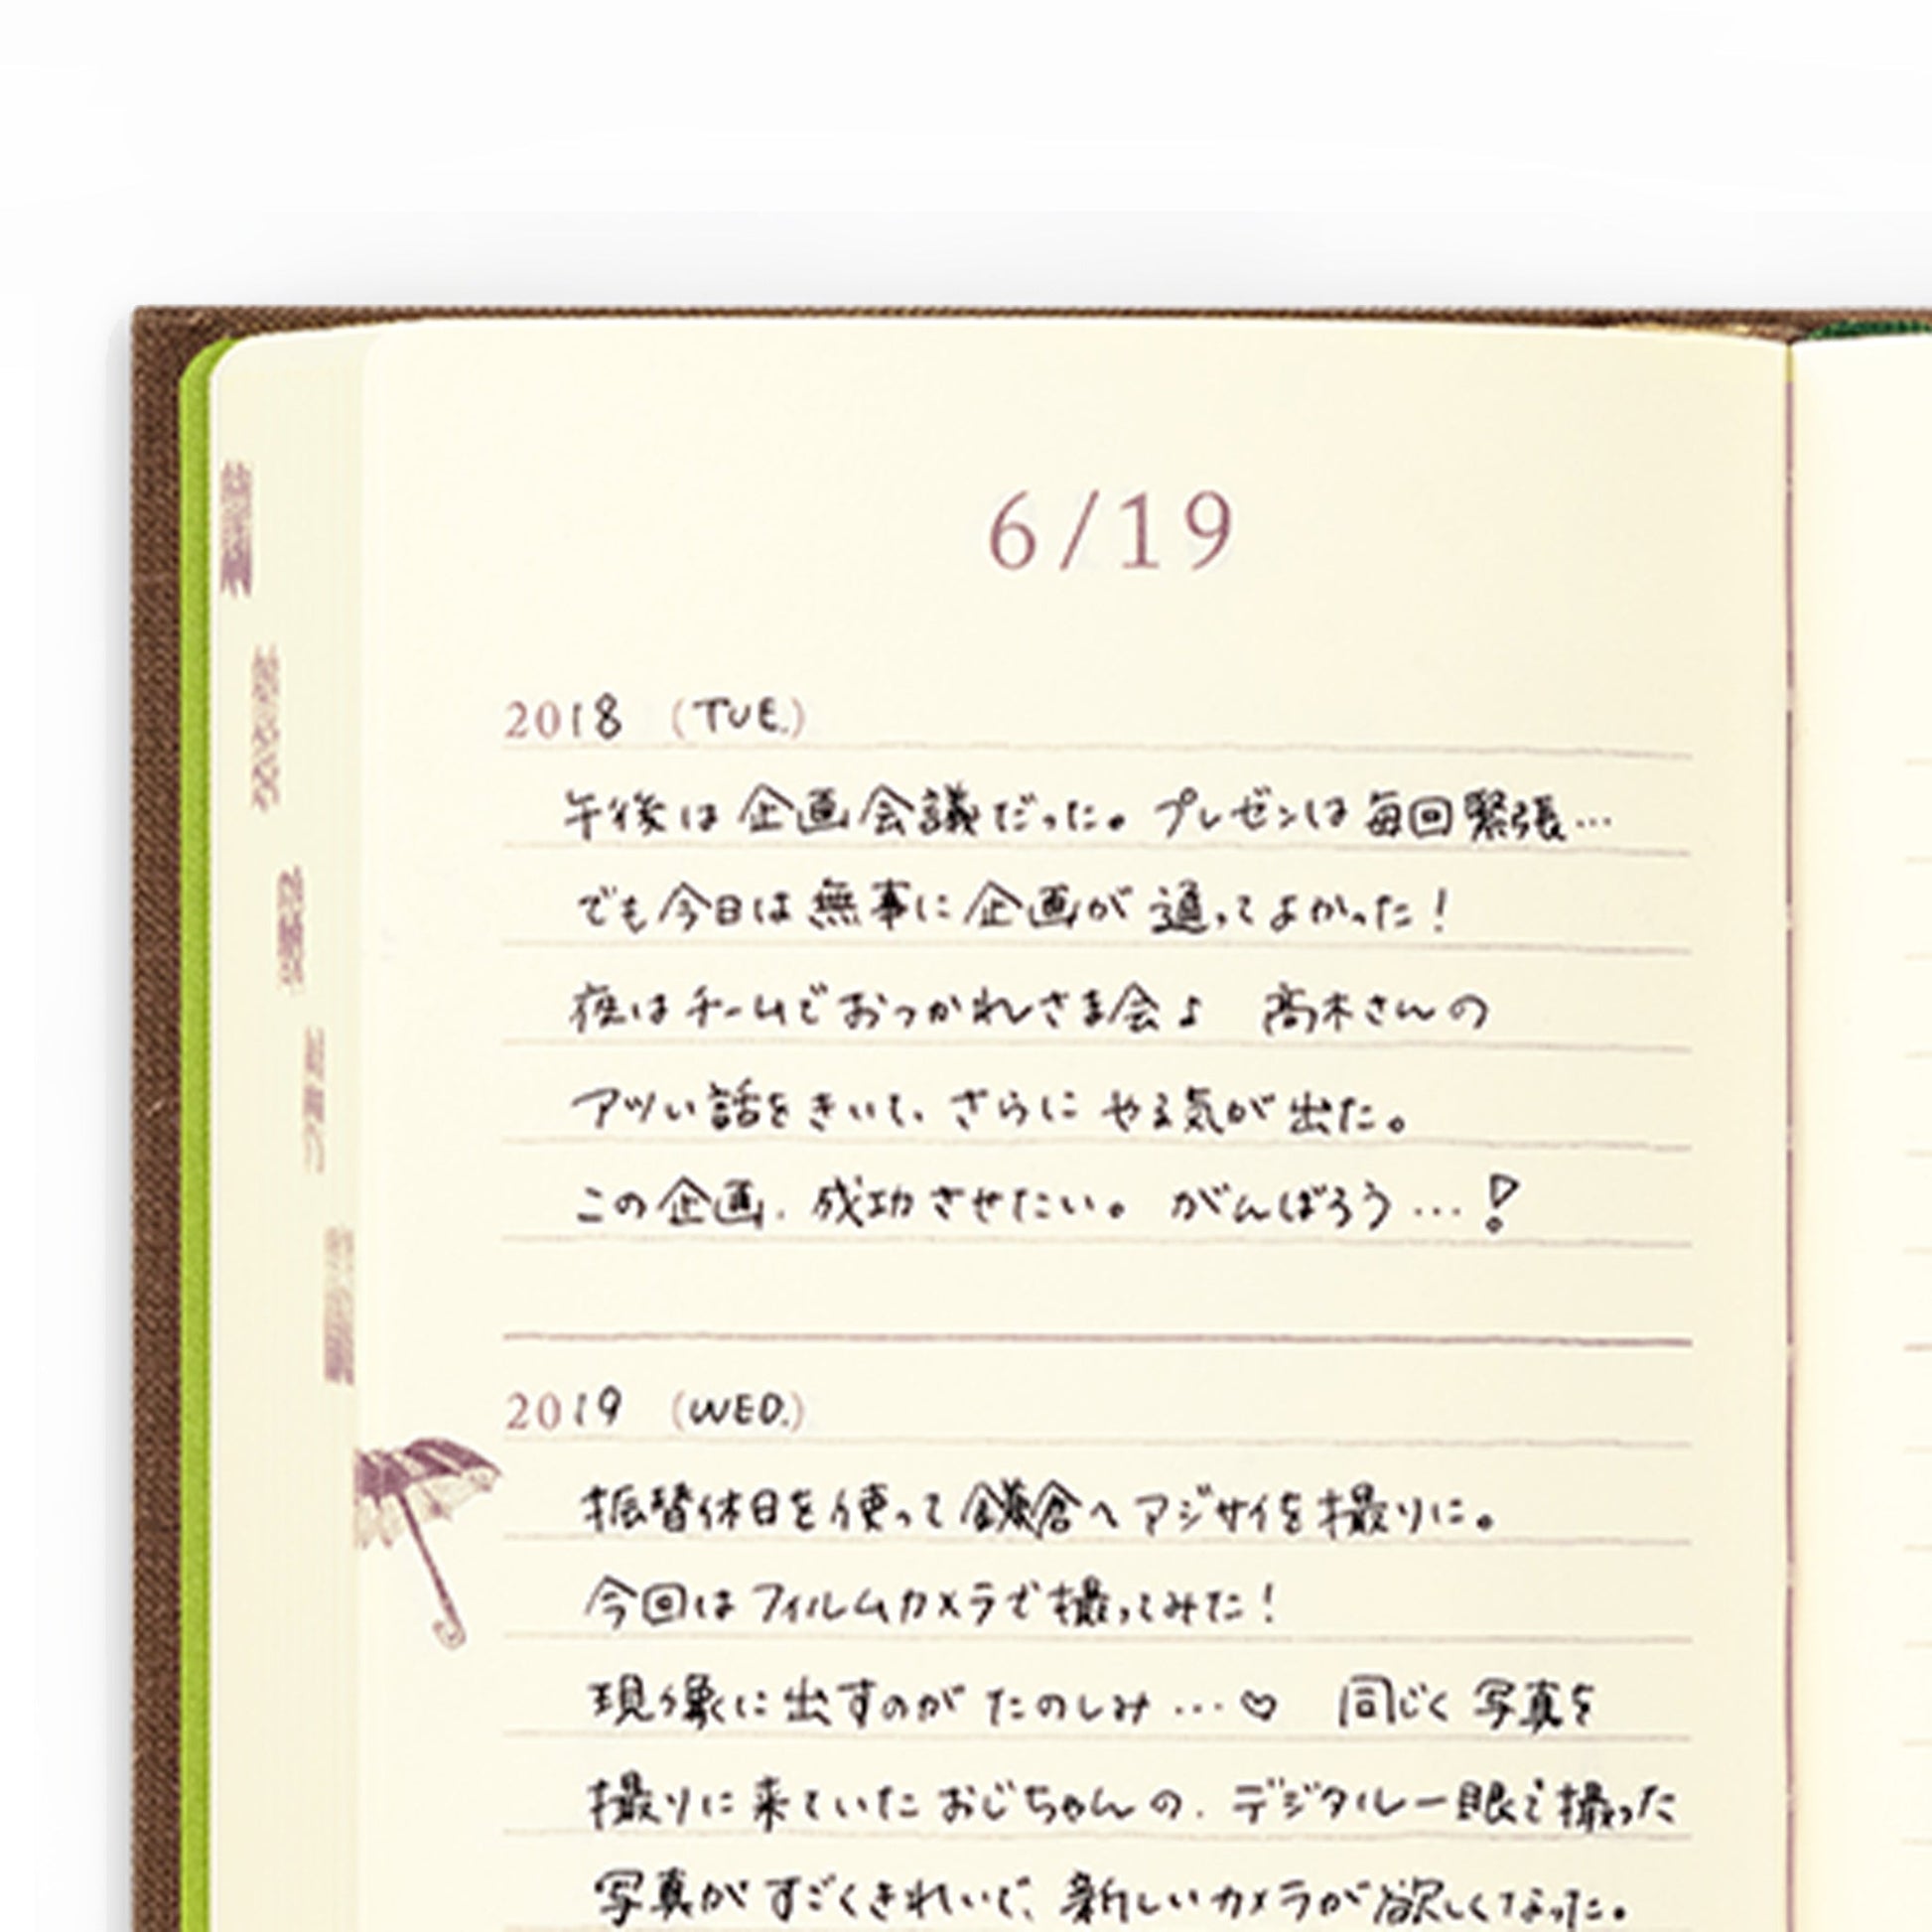 6/19
2018 (TUE.)
午後は企画会議だった。プレゼンは毎回緊張…
でも今日は無事に企画が通ってよかった!
夜はチームでおつかれさま会♪ 高木さんの
アツい話をきいて、さらにやる気が出た。
この企画、成功させたい。がんばろう…!
2019 (WED.)
振替休日を使って鎌倉へアジサイを撮りに。
今回はフィルムカメラで撮ってみた!
現像に出すのがたのしみ…♡ 同じく写真を
撮りに来ていたおじちゃんの、デジタル一眼で撮った
写真がすごくきれいで、新しいカメラが欲しくなった。